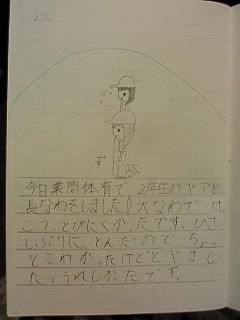 今日業間体育で、2年生のペアと
長なわをしました!大なわで、け
っこう、とびにくかったです。ひさ
しぶりに、とんだのでちょっ
とこわかったけどとべまし
た。うれしかったです。